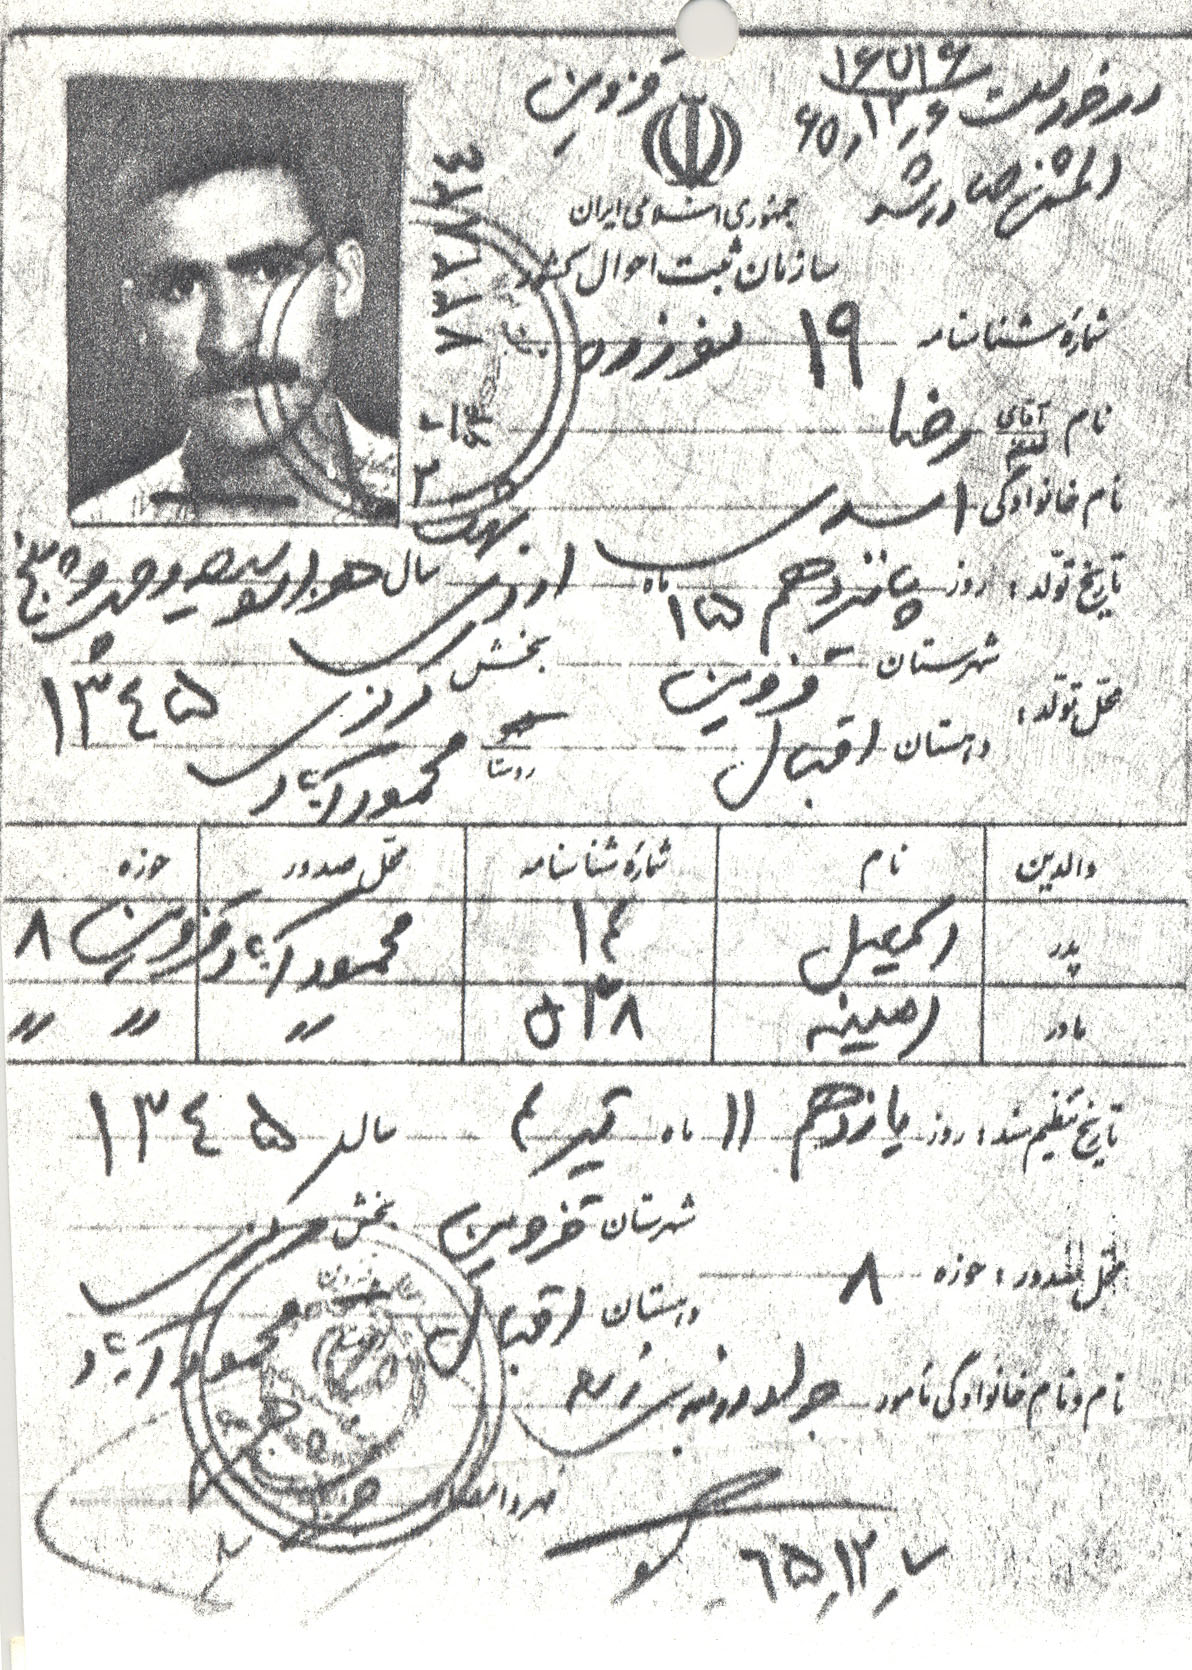 قزوین
۱۶۵۱۶
۶۵٫۱۲٫۶
المثنی صادر شد
جمهوری اسلامی ایران
سازمان ثبت احوال کشور
شماره شناسنامه ۱۹ نوزده
نام آقای خانم رضا
نام خانوادگی اسدی
تاریخ تولد: روز پانزدهم ۱۵ ماه سال هزار و سیصد و چهل و پنج
۱۳۴۵
محل تولد: شهرستان قزوین بخش مرکزی
دهستان اقبال روستا محمودآباد
والدین نام شماره شناسنامه محل صدور حوزه
پدر اسمعیل ۱۴ محمودآباد قزوین ۸
مادر امینه ۵۳۸ 〃 〃 〃
تاریخ تنظیم سند: روز یازدهم ۱۱ ماه تیر ۴ سال ۱۳۴۵
شهرستان قزوین بخش مرکزی
محل صدور: حوزه ۸
دهستان اقبال محمودآباد
نام و نام خانوادگی مامور
مهر و امضاء
۶۵٫۱۲٫